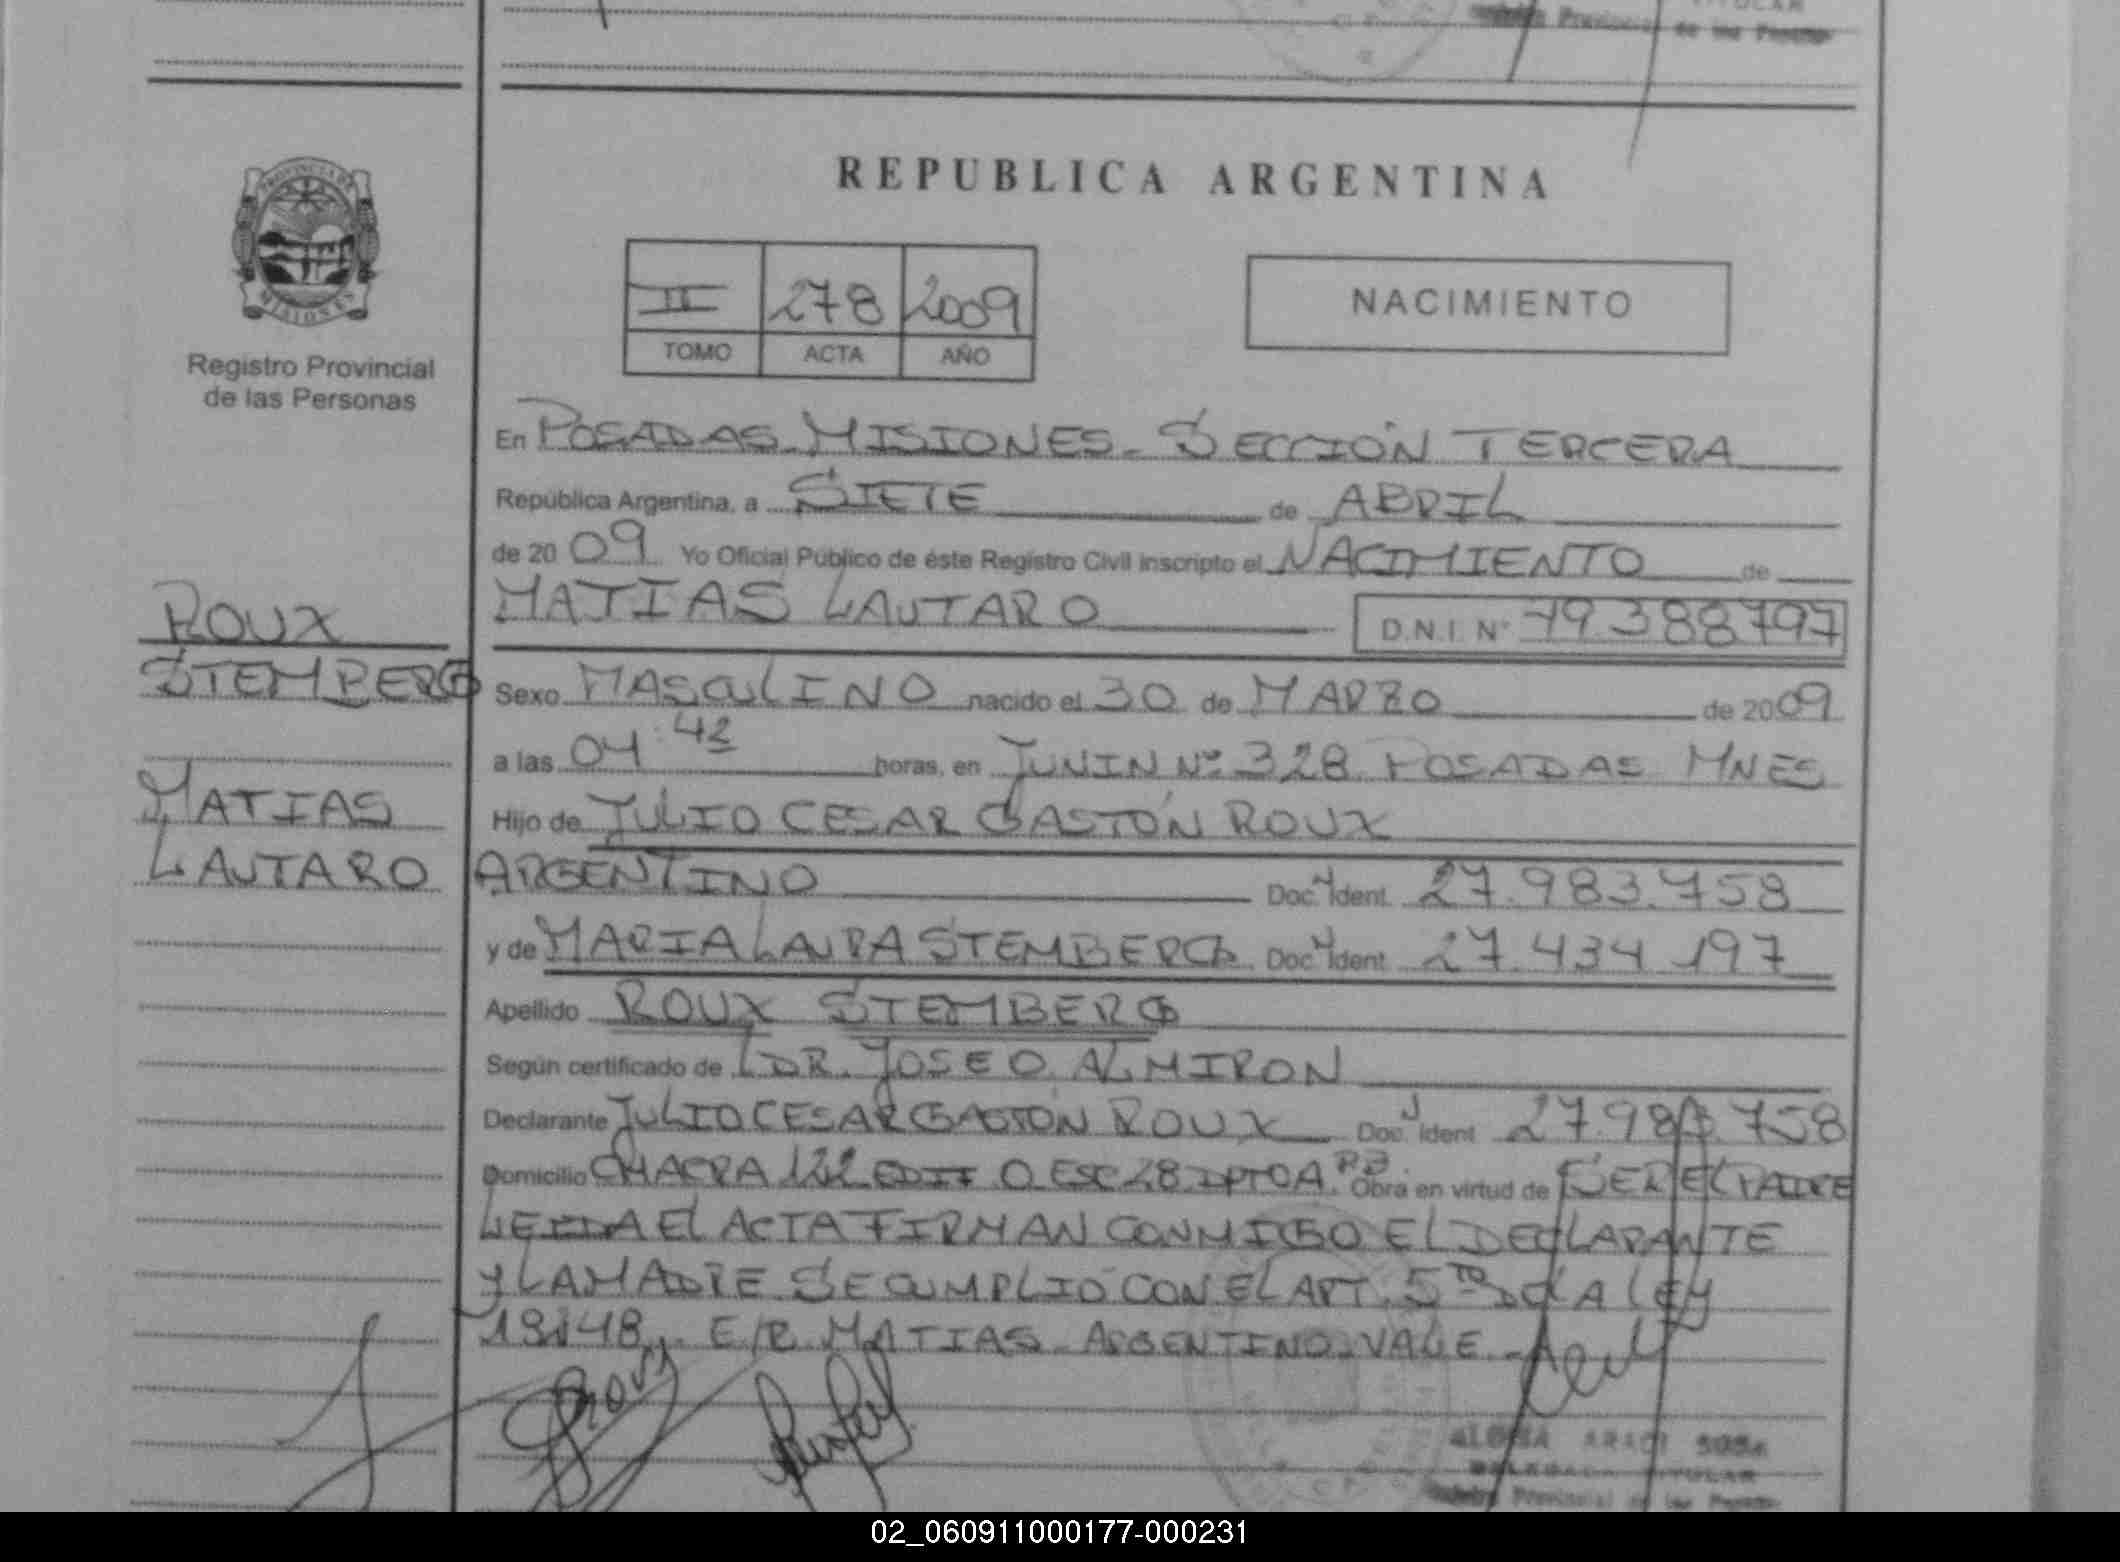 Provincial de las Personas
REPUBLICA ARGENTINA
PROVINCIA DE
MISIONES
Registro Provincial
de las Personas
II 278 2009
TOMO ACTA AÑO
NACIMIENTO
En POSADAS-MISIONES- SECCIÓN TERCERA
República Argentina, a SIETE de ABRIL
de 2009 Yo Oficial Público de éste Registro Civil inscripto el NACIMIENTO de
MATIAS LAUTARO D.N.I. Nº 49.388797
ROUX
STEMBERG
MATIAS
LAUTARO
Sexo MASCULINO nacido el 30 de MARZO de 2009
a las 04:42 horas, en JUNIN Nº 328 POSADAS MNES
Hijo de JULIO CESAR GASTÓN ROUX
ARGENTINO Doc. Ident. 27.983.758
y de MARIA LAURA STEMBERG Doc. Ident. 27.434.197
Apellido ROUX STEMBERG
Según certificado de DR. JOSE O. ALMIRON
Declarante JULIO CESAR GASTON ROUX Doc. Ident. 27.983.758
Domicilio CHACRA 122 EDIF O ESC 28 DPTO A. PB. Obra en virtud de SER EL PADRE
LEIDA EL ACTA FIRMAN CONMIGO EL DECLARANTE
Y LA MADRE SE CUMPLIÓ CON EL ART. 5TO D LA LEY
E/R MATIAS- ARGENTINO. VALE-
Roux
ARACI SOSA
DELEGADA TITULAR
Provincial de las Personas
02_060911000177-000231